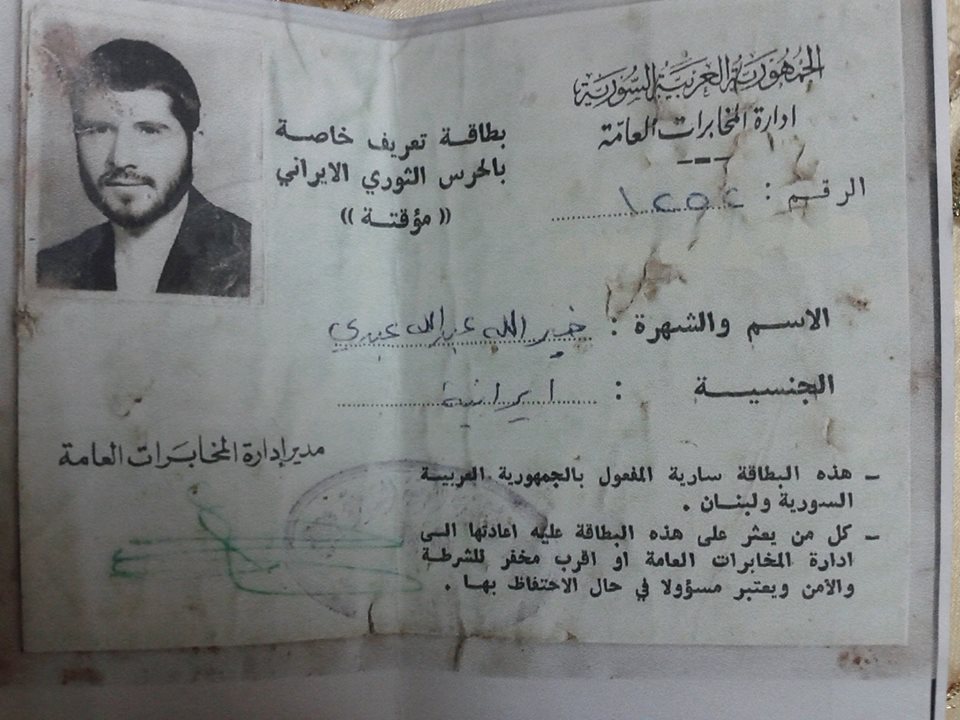 الجمهورية العربية السورية
ادارة المخابرات العامّة
الرقم :
بطاقة تعريف خاصة
بالحرس الثوري الايراني
(( مؤقتة ))
الاسم والشهرة : خير الله عبدالله عبدي
الجنسية : ايرانية
مدير إدارة المخابرات العامة
– هذه البطاقة سارية المفعول بالجمهورية العربية
السورية ولبنان .
– كل من يعثر على هذه البطاقة عليه اعادتها الى
ادارة المخابرات العامة او اقرب مخفر للشرطة
والأمن ويعتبر مسؤولا في حال الاحتفاظ بها .